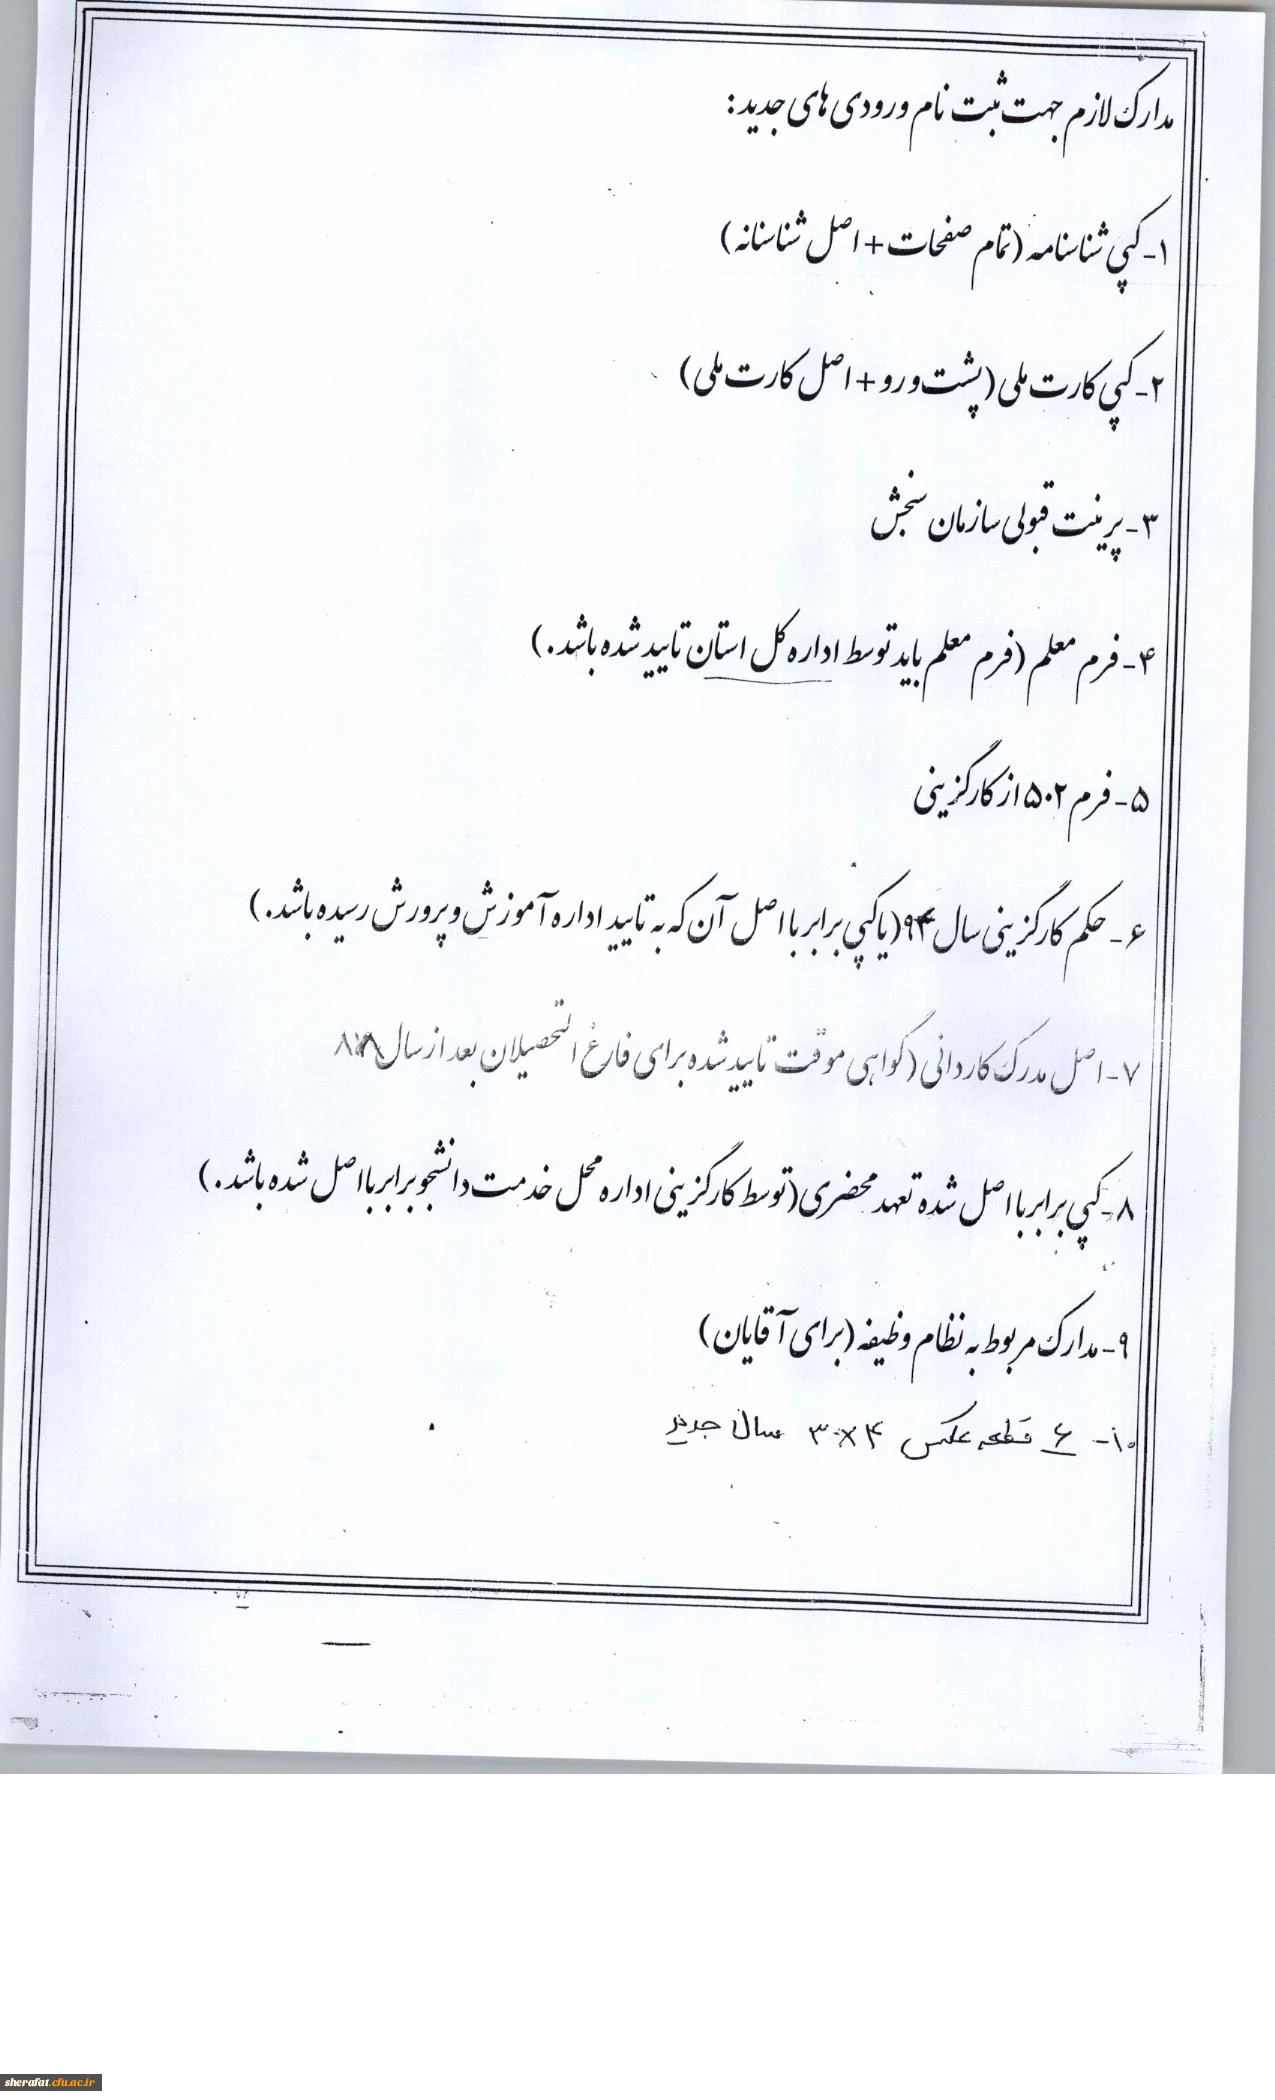 مدارک لازم جهت ثبت نام ورودی های جدید:
۱- کپی شناسنامه (تمام صفحات + اصل شناسنانه)
۲- کپی کارت ملی (پشت و رو + اصل کارت ملی)
۳- پرینت قبولی سازمان سنجش
۴- فرم معلم (فرم معلم باید توسط اداره کل استان تایید شده باشد.)
۵- فرم ۵۰۲ از کارگزینی
۶- حکم کارگزینی سال ۹۴ (یا کپی برابر با اصل آن که به تایید اداره آموزش و پرورش رسیده باشد.)
۷- اصل مدرک کاردانی (گواهی موقت تایید شده برای فارغ التحصیلان بعد از سال
۸- کپی برابر با اصل شده تعهد محضری (توسط کارگزینی اداره محل خدمت دانشجو برابر با اصل شده باشد.)
۹- مدارک مربوط به نظام وظیفه (برای آقایان)
۱۰- ۶ قطعه عکس ۳×۴ سال جدید
sherafat.cfu.ac.ir